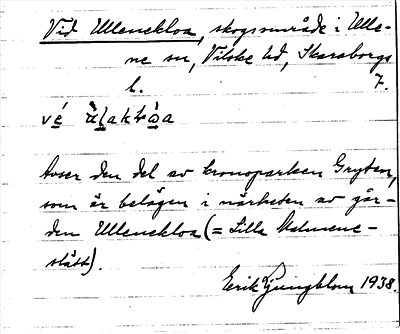 Vid Ullenekloa, skogsområde i Ulle-
ne sn, Vilske hd, Skaraborgs
l. 7.
Avser den del av kronoparken Gryten,
som är belägen i närheten av går-
den Ullenekloa (= Lilla
slätt).
Erik Ljungblom 1938.